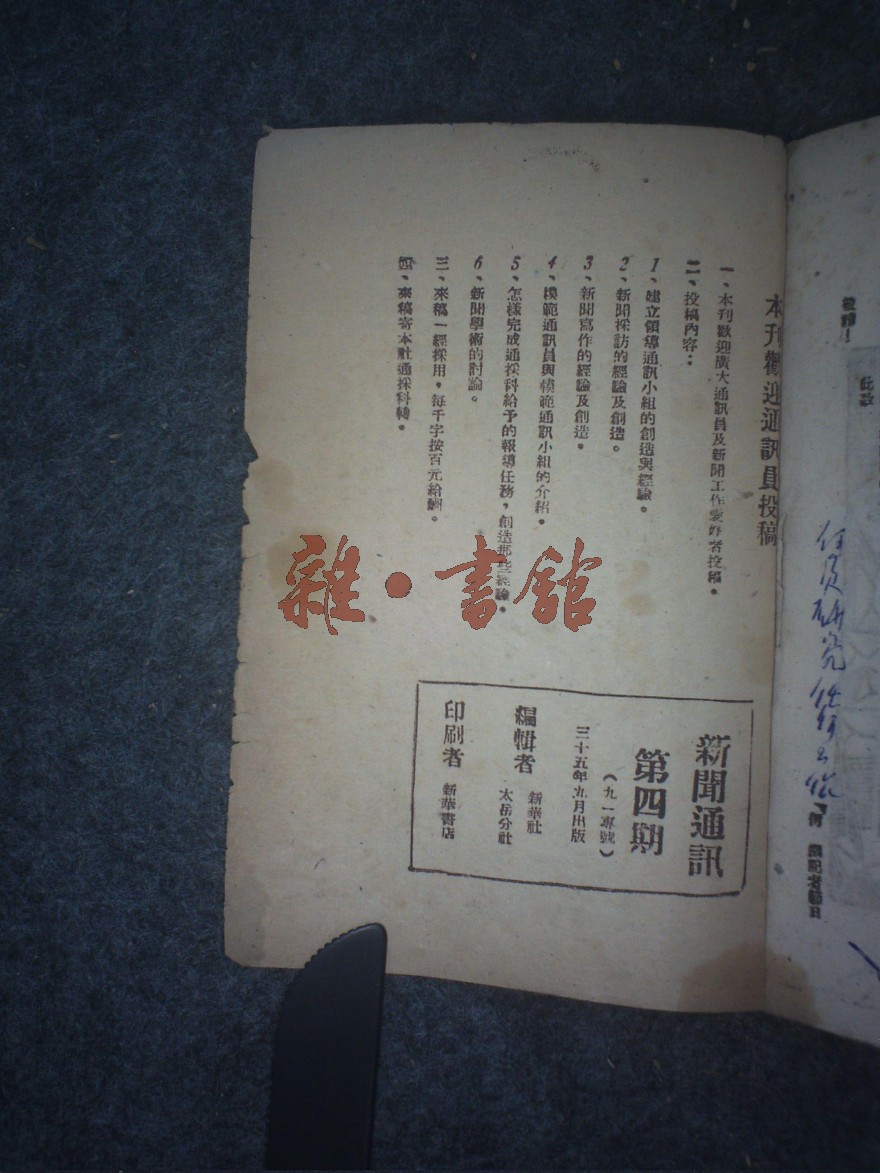 本刊歡迎通訊員投稿
一、本刊歡迎廣大通訊員及新聞工作愛好者投稿。
二、投稿內容：
1、建立領導通訊小組的創造與經驗。
2、新聞採訪的經驗及創造。
3、新聞寫作的經驗及創造。
4、模範通訊員與模範通訊小組的介紹。
5、怎樣完成通採科給予的報導任務，創造那些經驗。
6、新聞學術的討論。
三、來稿一經採用，每千字按百元給酬。
四、來稿寄本社通採科轉。
新聞通訊
第四期
（九一專號）
三十五年九月出版
編輯者 新華社
太岳分社
印刷者 新華書店
雜·書館
記者節日